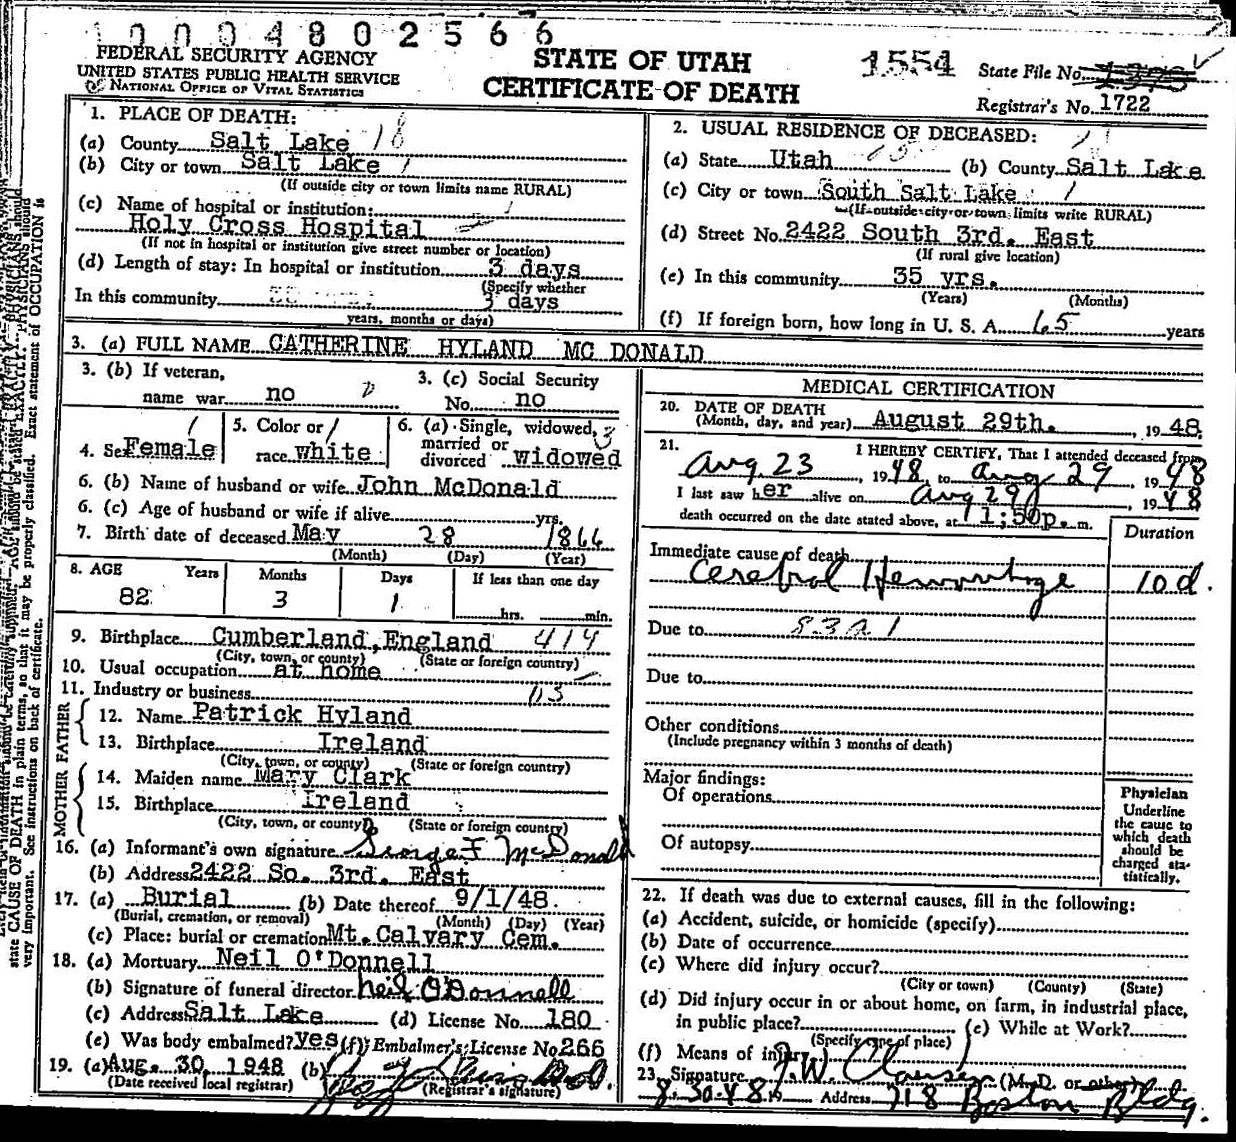 10004802566
FEDERAL SECURITY AGENCY
UNITED STATES PUBLIC HEALTH SERVICE
NATIONAL OFFICE OF VITAL STATISTICS
STATE OF UTAH
CERTIFICATE OF DEATH
1554
State File No.
Registrar's No. 1722
1. PLACE OF DEATH:
(a) County Salt Lake 18
(b) City or town Salt Lake 1
(If outside city or town limits name RURAL)
(c) Name of hospital or institution:
Holy Cross Hospital
(If not in hospital or institution give street number or location)
(d) Length of stay: In hospital or institution 3 days
(Specify whether
In this community 3 days
years, months or days)
2. USUAL RESIDENCE OF DECEASED:
(a) State Utah (b) County Salt Lake
(c) City or town South Salt Lake 1
(If outside city or town limits write RURAL)
(d) Street No. 2422 South 3rd. East
(If rural give location)
(e) In this community 35 yrs.
(Years) (Months)
(f) If foreign born, how long in U. S. A. 65 years
3. (a) FULL NAME CATHERINE HYLAND MC DONALD
3. (b) If veteran,
name war no
3. (c) Social Security
No. no
4. Sex Female
5. Color or
race white
6. (a) Single, widowed, 3
married or
divorced widowed
6. (b) Name of husband or wife John McDonald
6. (c) Age of husband or wife if alive yrs.
7. Birth date of deceased May 28 1866
(Month) (Day) (Year)
8. AGE Years Months Days If less than one day
82 3 1 hrs. min.
9. Birthplace Cumberland, England 414
(City, town, or county) (State or foreign country)
10. Usual occupation at home
11. Industry or business
FATHER
12. Name Patrick Hyland
13. Birthplace Ireland
(City, town, or county) (State or foreign country)
MOTHER
14. Maiden name Mary Clark
15. Birthplace Ireland
(City, town, or county) (State or foreign country)
16. (a) Informant's own signature George F McDonald
(b) Address 2422 So. 3rd. East
17. (a) Burial (b) Date thereof 9/1/48.
(Burial, cremation, or removal) (Month) (Day) (Year)
(c) Place: burial or cremation Mt. Calvary Cem.
18. (a) Mortuary Neil O'Donnell
(b) Signature of funeral director Neil O'Donnell
(c) Address Salt Lake (d) License No. 180
(e) Was body embalmed? yes (f) Embalmer's License No 266
19. (a) Aug. 30, 1948 (b)
(Date received local registrar) (Registrar's signature)
MEDICAL CERTIFICATION
20. DATE OF DEATH
(Month, day, and year) August 29th. , 19 48.
21. I HEREBY CERTIFY, That I attended deceased from
Aug 23 , 19 48, to Aug 29 , 19 48
I last saw her alive on Aug 29 , 19 48
death occurred on the date stated above, at 11:50p. m.
Duration
Immediate cause of death
Cerebral Hemorrhage 10 d.
Due to
Due to
Other conditions
(Include pregnancy within 3 months of death)
Major findings:
Of operations
Of autopsy
Physician
Underline
the cause to
which death
should be
charged sta-
tistically.
22. If death was due to external causes, fill in the following:
(a) Accident, suicide, or homicide (specify)
(b) Date of occurrence
(c) Where did injury occur?
(City or town) (County) (State)
(d) Did injury occur in or about home, on farm, in industrial place,
in public place? (e) While at Work?
(Specify type of place)
(f) Means of injury
23. Signature (M. D. or other)
8-30-48 19 Address 718 Boston Bldg.
state CAUSE OF DEATH in plain terms, so that it may be properly classified. Exact statement of OCCUPATION is
very important. See instructions on back of certificate.